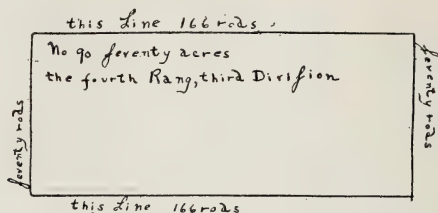 this Line 166 rods.
No 90 ſeventy acres
the fourth Rang, third Diviſion
ſeventy rods
ſeventy rods
this Line 166 rods